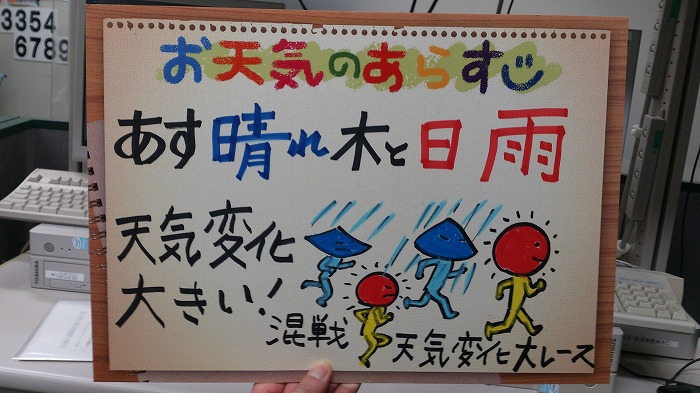 3354
6789
お天気のあらすじ
あす晴れ木と日雨
天気変化
大きい!
混戦
天気変化大レース
TOSHIBA